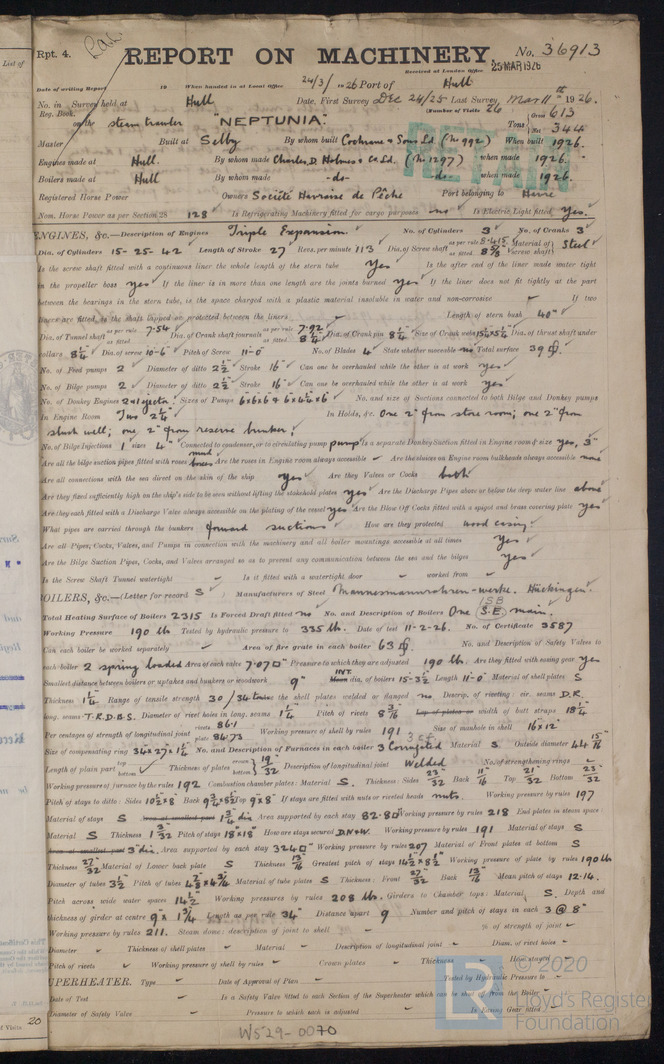 Rpt. 4.
REPORT ON MACHINERY No. 36913
Received at London Office 25 MAR 1926
Date of writing Report 19 When handed in at Local Office 24/3/1926 Port of Hull
No. in Survey held at Hull Date, First Survey Dec 24/25 Last Survey Mar 11th 1926.
Reg. Book. (Number of Visits 26
on the steam trawler "NEPTUNIA" Tons Gross 613 Net 344
Master Built at Selby By whom built Cochrane & Sons Ld (No 992) When built 1926.
Engines made at Hull. By whom made Charles D. Holmes & Co. Ld. (No 1297) when made 1926.
Boilers made at Hull By whom made -do- -do- when made 1926.
Registered Horse Power Owners Société Havraise de Pêche Port belonging to Havre
Nom. Horse Power as per Section 28 128 Is Refrigerating Machinery fitted for cargo purposes no Is Electric Light fitted Yes.
ENGINES, &c.—Description of Engines Triple Expansion. No. of Cylinders 3 No. of Cranks 3
Dia. of Cylinders 15 - 25 - 42 Length of Stroke 27 Revs. per minute 113 Dia. of Screw shaft as per rule as fitted 8 5/8 Material of screw shaft Steel
Is the screw shaft fitted with a continuous liner the whole length of the stern tube Yes Is the after end of the liner made water tight
in the propeller boss yes If the liner is in more than one length are the joints burned yes If the liner does not fit tightly at the part
between the bearings in the stern tube, is the space charged with a plastic material insoluble in water and non-corrosive If two
liners are fitted, is the shaft lapped or protected between the liners Length of stern bush 40"
Dia. of Tunnel shaft as per rule 7.54 as fitted Dia. of Crank shaft journals as per rule 7.92 as fitted 8 1/4 Dia. of Crank pin 8 1/4 Size of Crank webs 15 1/4 x 5 1/4 Dia. of thrust shaft under
collars 8 1/4 Dia. of screw 10-6 Pitch of Screw 11-0 No. of Blades 4 State whether moveable no Total surface 39
No. of Feed pumps 2 Diameter of ditto 2 1/2 Stroke 16" Can one be overhauled while the other is at work yes
No. of Bilge pumps 2 Diameter of ditto 2 1/2 Stroke 16" Can one be overhauled while the other is at work yes
No. of Donkey Engines 2 + ejector. Sizes of Pumps 6x6x6 & 6x4 1/4x6 No. and size of Suctions connected to both Bilge and Donkey pumps
In Engine Room Two 2 1/4" In Holds, &c. One 2" from store room; one 2" from
slush well; one 2" from reserve bunker.
No. of Bilge Injections 1 sizes 4" Connected to condenser, or to circulating pump pump Is a separate Donkey Suction fitted in Engine room & size yes, 3"
Are all the bilge suction pipes fitted with roses mud boxes Are the roses in Engine room always accessible Are the sluices on Engine room bulkheads always accessible none
Are all connections with the sea direct on the skin of the ship yes Are they Valves or Cocks both
Are they fixed sufficiently high on the ship's side to be seen without lifting the stokehold plates yes Are the Discharge Pipes above or below the deep water line above
Are they each fitted with a Discharge Valve always accessible on the plating of the vessel yes Are the Blow Off Cocks fitted with a spigot and brass covering plate yes
What pipes are carried through the bunkers forward suctions How are they protected wood casing
Are all Pipes, Cocks, Valves, and Pumps in connection with the machinery and all boiler mountings accessible at all times Yes
Are the Bilge Suction Pipes, Cocks, and Valves arranged so as to prevent any communication between the sea and the bilges yes
Is the Screw Shaft Tunnel watertight Is it fitted with a watertight door worked from
BOILERS, &c.—(Letter for record S) Manufacturers of Steel Mannesmannrohren-werke. Huckingen.
Total Heating Surface of Boilers 2315 Is Forced Draft fitted no No. and Description of Boilers One S.E. main. 1SB
Working Pressure 190 lb Tested by hydraulic pressure to 335 lb. Date of test 11-2-26. No. of Certificate 3587
Can each boiler be worked separately Area of fire grate in each boiler 63 No. and Description of Safety Valves to
each boiler 2 spring loaded Area of each valve 7.07 Pressure to which they are adjusted 190 lb. Are they fitted with easing gear Yes
Smallest distance between boilers or uptakes and bunkers or woodwork 9" INT. dia. of boilers 15-3 1/2 Length 11-0 Material of shell plates S
Thickness 1 1/4 Range of tensile strength 30/34 tons Are the shell plates welded or flanged no Descrip. of riveting: cir. seams D.R.
long. seams T.R.D.B.S. Diameter of rivet holes in long. seams 1 1/4 Pitch of rivets 8 3/16 Lap of plates or width of butt straps 18 1/4
Per centages of strength of longitudinal joint rivets 86.1 plate 84.73 Working pressure of shell by rules 191 Size of manhole in shell 16x12
Size of compensating ring 34x27x1 1/4 No. and Description of Furnaces in each boiler 3 Corrugated Material S Outside diameter 44 15/16
Length of plain part top bottom Thickness of plates crown bottom 19/32 Description of longitudinal joint Welded No. of strengthening rings
Working pressure of furnace by the rules 192 Combustion chamber plates: Material S. Thickness: Sides 23/32 Back 11/16 Top 21/32 Bottom 23/32
Pitch of stays to ditto: Sides 10 1/2 x 8 Back 9 3/4 x 8 1/2 Top 9x8" If stays are fitted with nuts or riveted heads nuts. Working pressure by rules 197
Material of stays S Area at smallest part 1 3/4 dia Area supported by each stay 82.80 Working pressure by rules 218 End plates in steam space:
Material S Thickness 1 3/32 Pitch of stays 18x18" How are stays secured D.N.&W. Working pressure by rules 191 Material of stays S
Area at smallest part 3" dia. Area supported by each stay 324 Working pressure by rules 207 Material of Front plates at bottom S
Thickness 27/32 Material of Lower back plate S Thickness 13/16 Greatest pitch of stays 14 1/2 x 8 1/2 Working pressure of plate by rules 190 lb
Diameter of tubes 3 1/2 Pitch of tubes 4 7/8 x 4 3/4 Material of tube plates S Thickness: Front 27/32 Back 13/16 Mean pitch of stays 12.14.
Pitch across wide water spaces 14 1/2 Working pressures by rules 208 lb. Girders to Chamber tops: Material S. Depth and
thickness of girder at centre 9 x 1 3/4 Length as per rule 34" Distance apart 9 Number and pitch of stays in each 3 @ 8"
Working pressure by rules 211. Steam dome: description of joint to shell % of strength of joint
Diameter Thickness of shell plates Material Description of longitudinal joint Diam. of rivet holes
Pitch of rivets Working pressure of shell by rules Crown plates Thickness How stayed
SUPERHEATER. Type Date of Approval of Plan Tested by Hydraulic Pressure to
Date of Test Is a Safety Valve fitted to each Section of the Superheater which can be shut off from the Boiler
Diameter of Safety Valve Pressure to which each is adjusted Is Easing Gear fitted
W529-0070
© 2020
Lloyd's Register
Foundation
RETAIN
List of
20